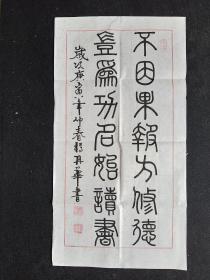 不因果報方修德
豈爲功名始讀書
歲次庚寅年仲春
書